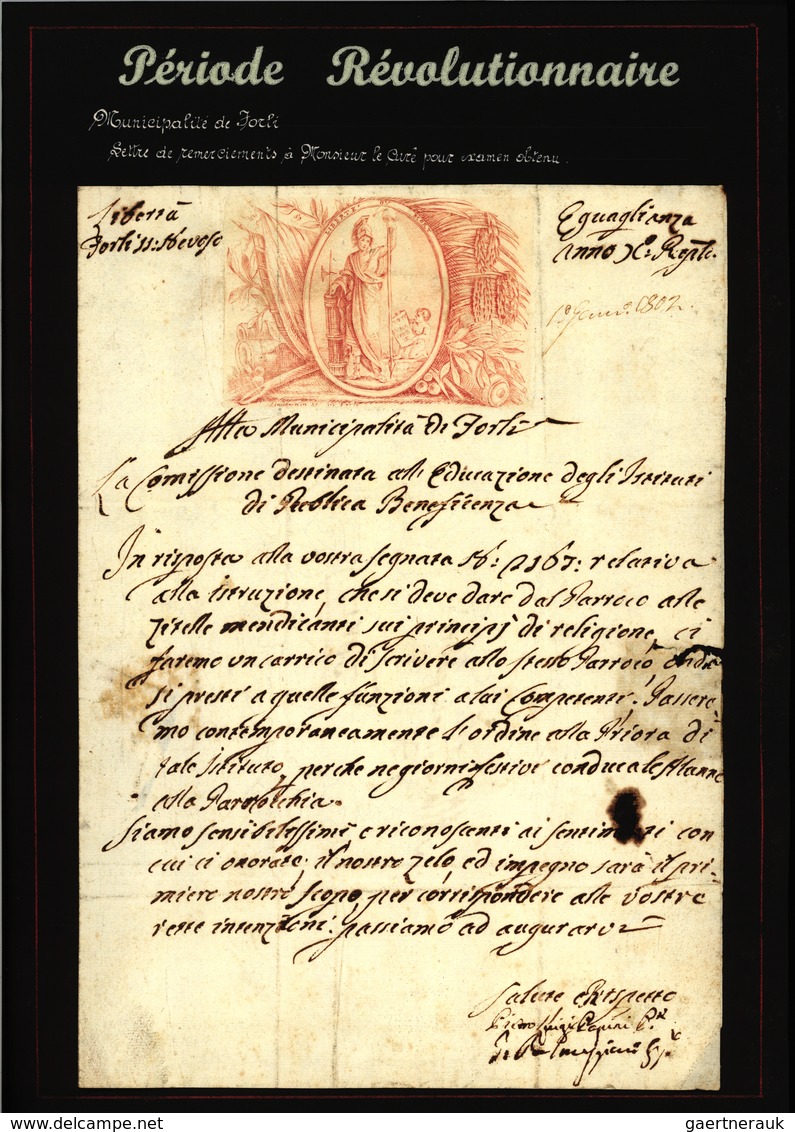 Période Révolutionnaire
Municipalité de Forli
Lettre de remerciements à Monsieur le Curé pour examen obtenu.
Libertà
Forli 11: Nevoso
Eguaglianza
Anno X.° Repb.
1.° Genn.° 1802.
Alla Municipalità di Forlì
La Comissione destinata all' Educazione degli Istituti
di Publica Beneficenza
In risposta alla vostra segnata N: 2167: relativa
alla istruzione, che si deve dare dal Parroco alle
Zitelle mendicanti sui principj di religione, ci
faremo un carrico di scrivere allo stesso Parroco, onde
si presti a quelle funzioni a lui competenti. Passere-
mo contemporaneamente l'ordine alla Priora di
tale Istituto, perche ne giorni festivi conduca le Alunne
alla Parrocchia.
Siamo sensibilissimi, e riconoscenti ai sentimenti con
cui ci onorate; il nostro zelo, ed impegno sarà il pri-
miero nostro scopo, per corrispondere alle vostre
rette intenzioni: passiamo ad augurarvi
Salute e Rispetto
gaertnerauk / delcampe.net